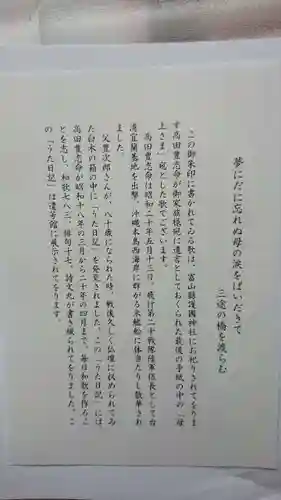 夢にだに忘れぬ母の涙をばいだきて
三途の橋を渡らむ
この御朱印に書かれてゐる歌は、富山縣護國神社にお祀りされてをりま
す高田豊志命が御家族様宛に遺言としておくられた最後の手紙の中の「母
上さま」宛とした歌でございます。
高田豊志命は昭和二十年五月十三日、飛行第二十戦隊陸軍伍長として台
湾宜蘭基地を出撃。沖縄本島西海岸に群がる米艦船に体当たりし散華され
ました。
父豊次郎さんが、八十歳になられた時、戦後久しく仏壇に収められてゐ
た白木の箱の中に「うた日記」を発見されました。この「うた日記」には
高田豊志命が昭和十八年の三月から二十年の四月まで、毎日和歌を作るこ
とを志し、和歌七八三、俳句十七、詩文九が書き綴られてをりました。こ
の「うた日記」は遺芳館に展示されてをります。